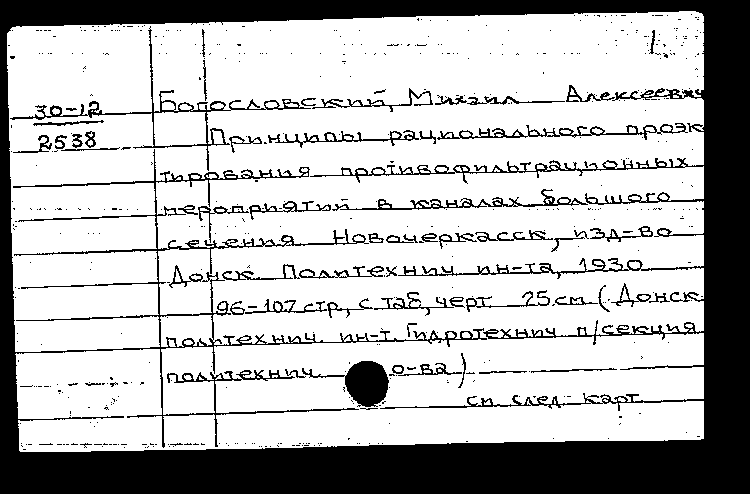 1.
30-12 Богословский, Михаил Алексеевич
2538 Принципы рационального проэк-
тирования противофильтрационных
мероприятий в каналах большого
сечения Новочеркасск, изд-во
Донск. Политехнич ин-та, 1930
96-107 стр., с таб, черт 25 см (Донск.
политехнич. ин-т. Гидротехнич п/секция
политехнич. о-ва)
см. след. карт.